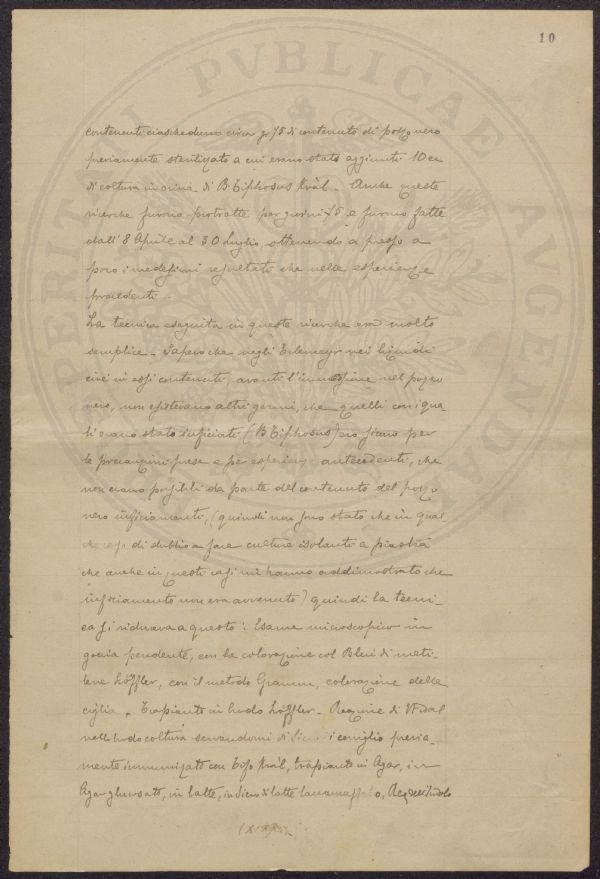 10
contenenti ciascheduno circa gr 75 di contenuto di pozzo nero
previamente sterilizzato a cui erano stati aggiunti 10 cc
di coltura in orina di B. Tiphosus Kràl. Anche queste
ricerche furono protratte per giorni 75 e furono fatte
dall' 8 Aprile al 30 Luglio ottenendo a presso a
poco i medesimi resultati che nelle esperienze
precedenti.
La tecnica eseguita in queste ricerche era molto
semplice. Sapevo che negli Erlenmeyer nei liquidi
cioè in essi contenuti, avanti l'immersione nel pozzo
nero, non esistevano altri germi, che quelli con i qua
li erano stati inficiati (B. Tiphosus) ero sicuro per
le precauzioni prese e per esperienze antecedenti, che
non erano possibili da parte del contenuto del pozzo
nero inficiamenti, (quindi non sono stato che in qual
che caso di dubbio a fare culture isolanti a piastra
che anche in questi casi mi hanno addimostrato che
inficiamento non era avvenuto) quindi la tecni-
ca si riduceva a questo: Esame microscopico in
goccia pendente, con la colorazione col Bleu di meti-
lene Löffler, con il metodo Gramm, colorazione delle
ciglia. Trapianto in brodo Löffler. Reazione di Vidal
nelle brodocolture servendomi di siero di coniglio previa-
mente immunizzato con Tifo Kràl, trapianto in Agar, in
Agar glucosato, in latte, in siero di latte tornasolato, Reaz. dell'Indolo